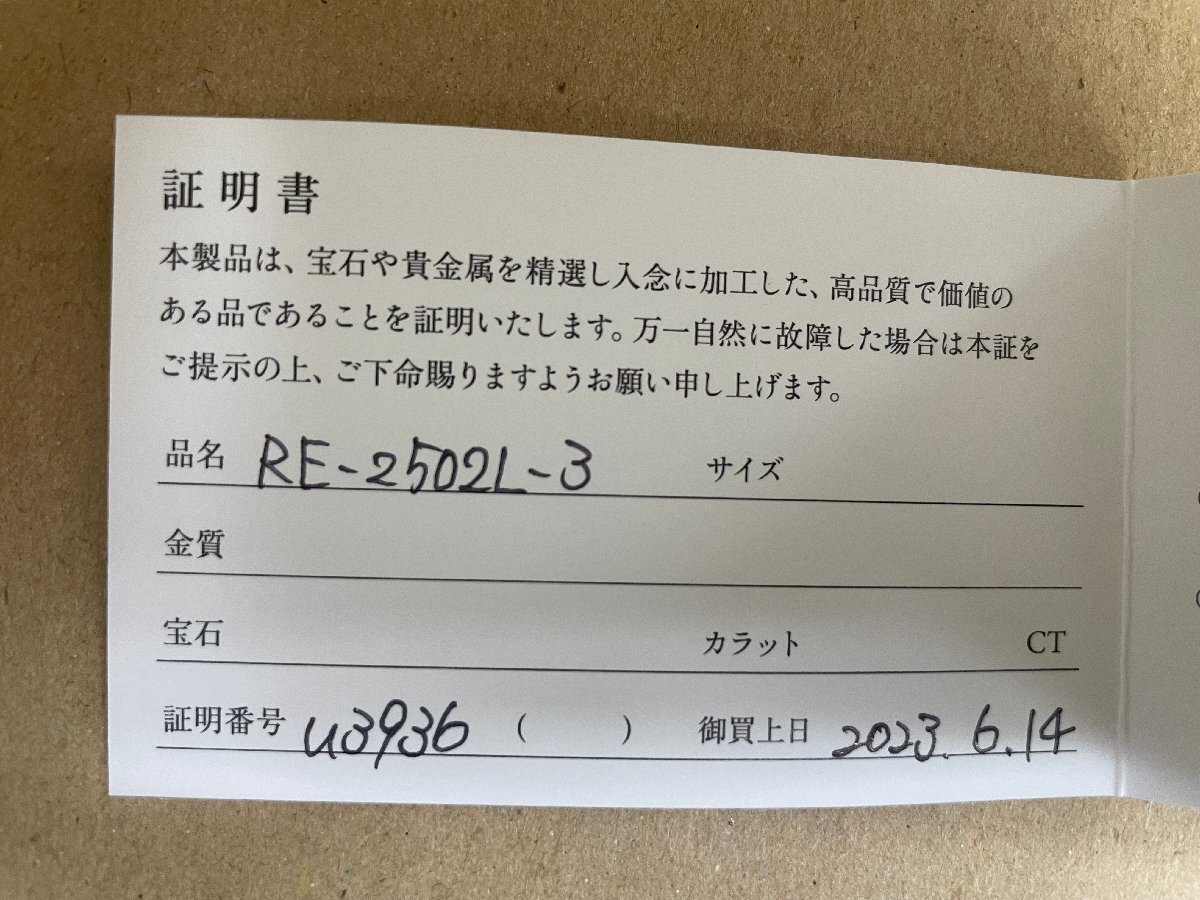 証明書
本製品は、宝石や貴金属を精選し入念に加工した、高品質で価値の
ある品であることを証明いたします。万一自然に故障した場合は本証を
ご提示の上、ご下命賜りますようお願い申し上げます。
品名 RE-2502L-3 サイズ
金質
宝石 カラット CT
証明番号 u3936 ( ) 御買上日 2023.6.14